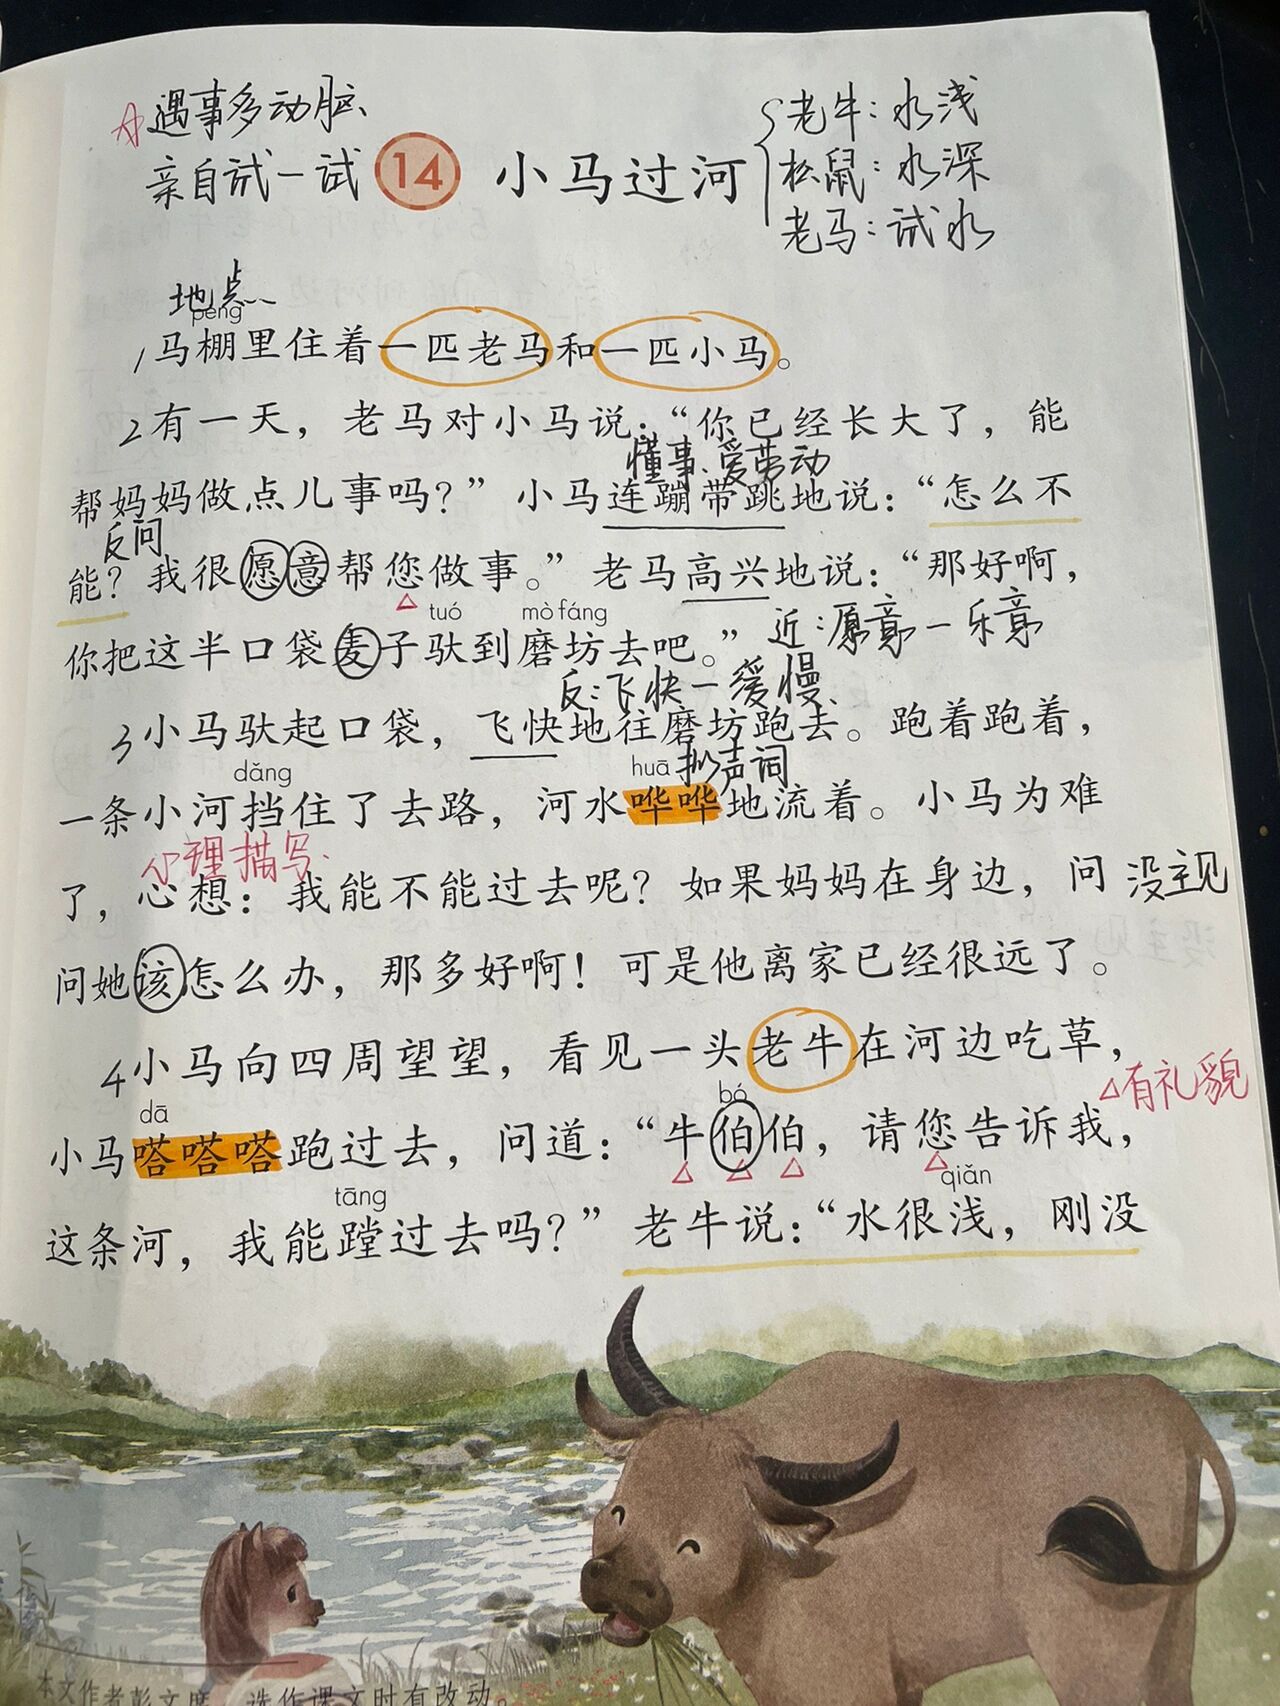 遇事多动脑、
亲自试一试
14 小马过河
老牛：水浅
松鼠：水深
老马：试水
地点
péng
1马棚里住着一匹老马和一匹小马。
2有一天，老马对小马说：“你已经长大了，能
懂事、爱劳动
帮妈妈做点儿事吗？”小马连蹦带跳地说：“怎么不
反问
能？我很愿意帮您做事。”老马高兴地说：“那好啊，
tuó mò fáng
近：愿意—乐意
你把这半口袋麦子驮到磨坊去吧。”
反：飞快—缓慢
3小马驮起口袋，飞快地往磨坊跑去。跑着跑着，
dǎng huā 拟声词
一条小河挡住了去路，河水哗哗地流着。小马为难
心理描写
了，心想：我能不能过去呢？如果妈妈在身边，问 没主见
问她该怎么办，那多好啊！可是他离家已经很远了。
4小马向四周望望，看见一头老牛在河边吃草，
有礼貌
dā bó
小马嗒嗒嗒跑过去，问道：“牛伯伯，请您告诉我，
tāng qiǎn
这条河，我能蹚过去吗？”老牛说：“水很浅，刚没
本文作者彭文席，选作课文时有改动。